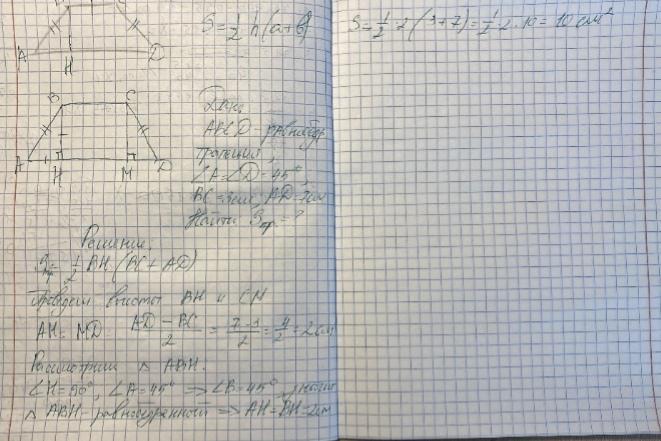 A H D
S = 1/2 h(a+b)
B C
A H M D
Дано:
ABCD - равнобедр
трапеция,
∠A=∠D=45°,
BC=3см, AD=7см
Найти Sтр=?
Решение:
Sтр=1/2 BH·(BC+AD)
Проведём высоты BH и CM
AH=MD= (AD-BC)/2 = (7-3)/2 = 4/2 = 2см
Рассмотрим △ ABH.
∠H=90°, ∠A=45° ⇒ ∠B=45°, значит
△ ABH - равнобедренный ⇒ AH=BH=2см
S=1/2·2·(3+7)=1/2·2·10=10 см²